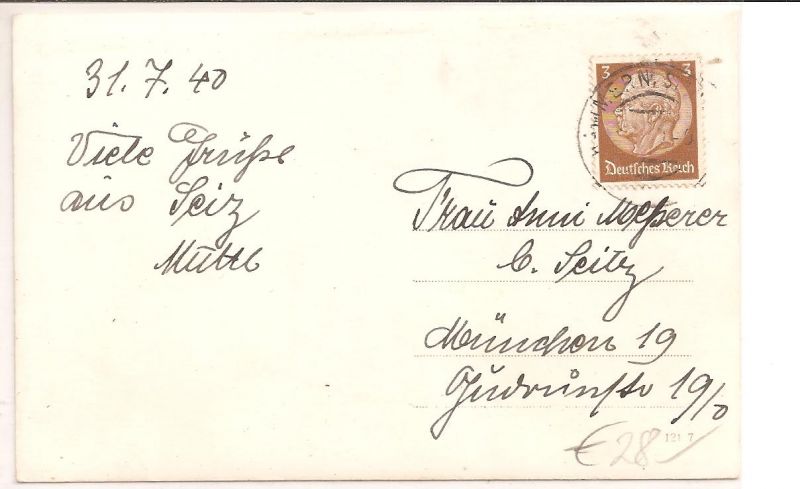 31. 7. 40
Viele Grüße
aus Seiz
Muttl
3 3
Deutsches Reich
Frau Anni Meßerer
b. Seitz
München 19
Gudrunstr 19/0
€ 28
121 7